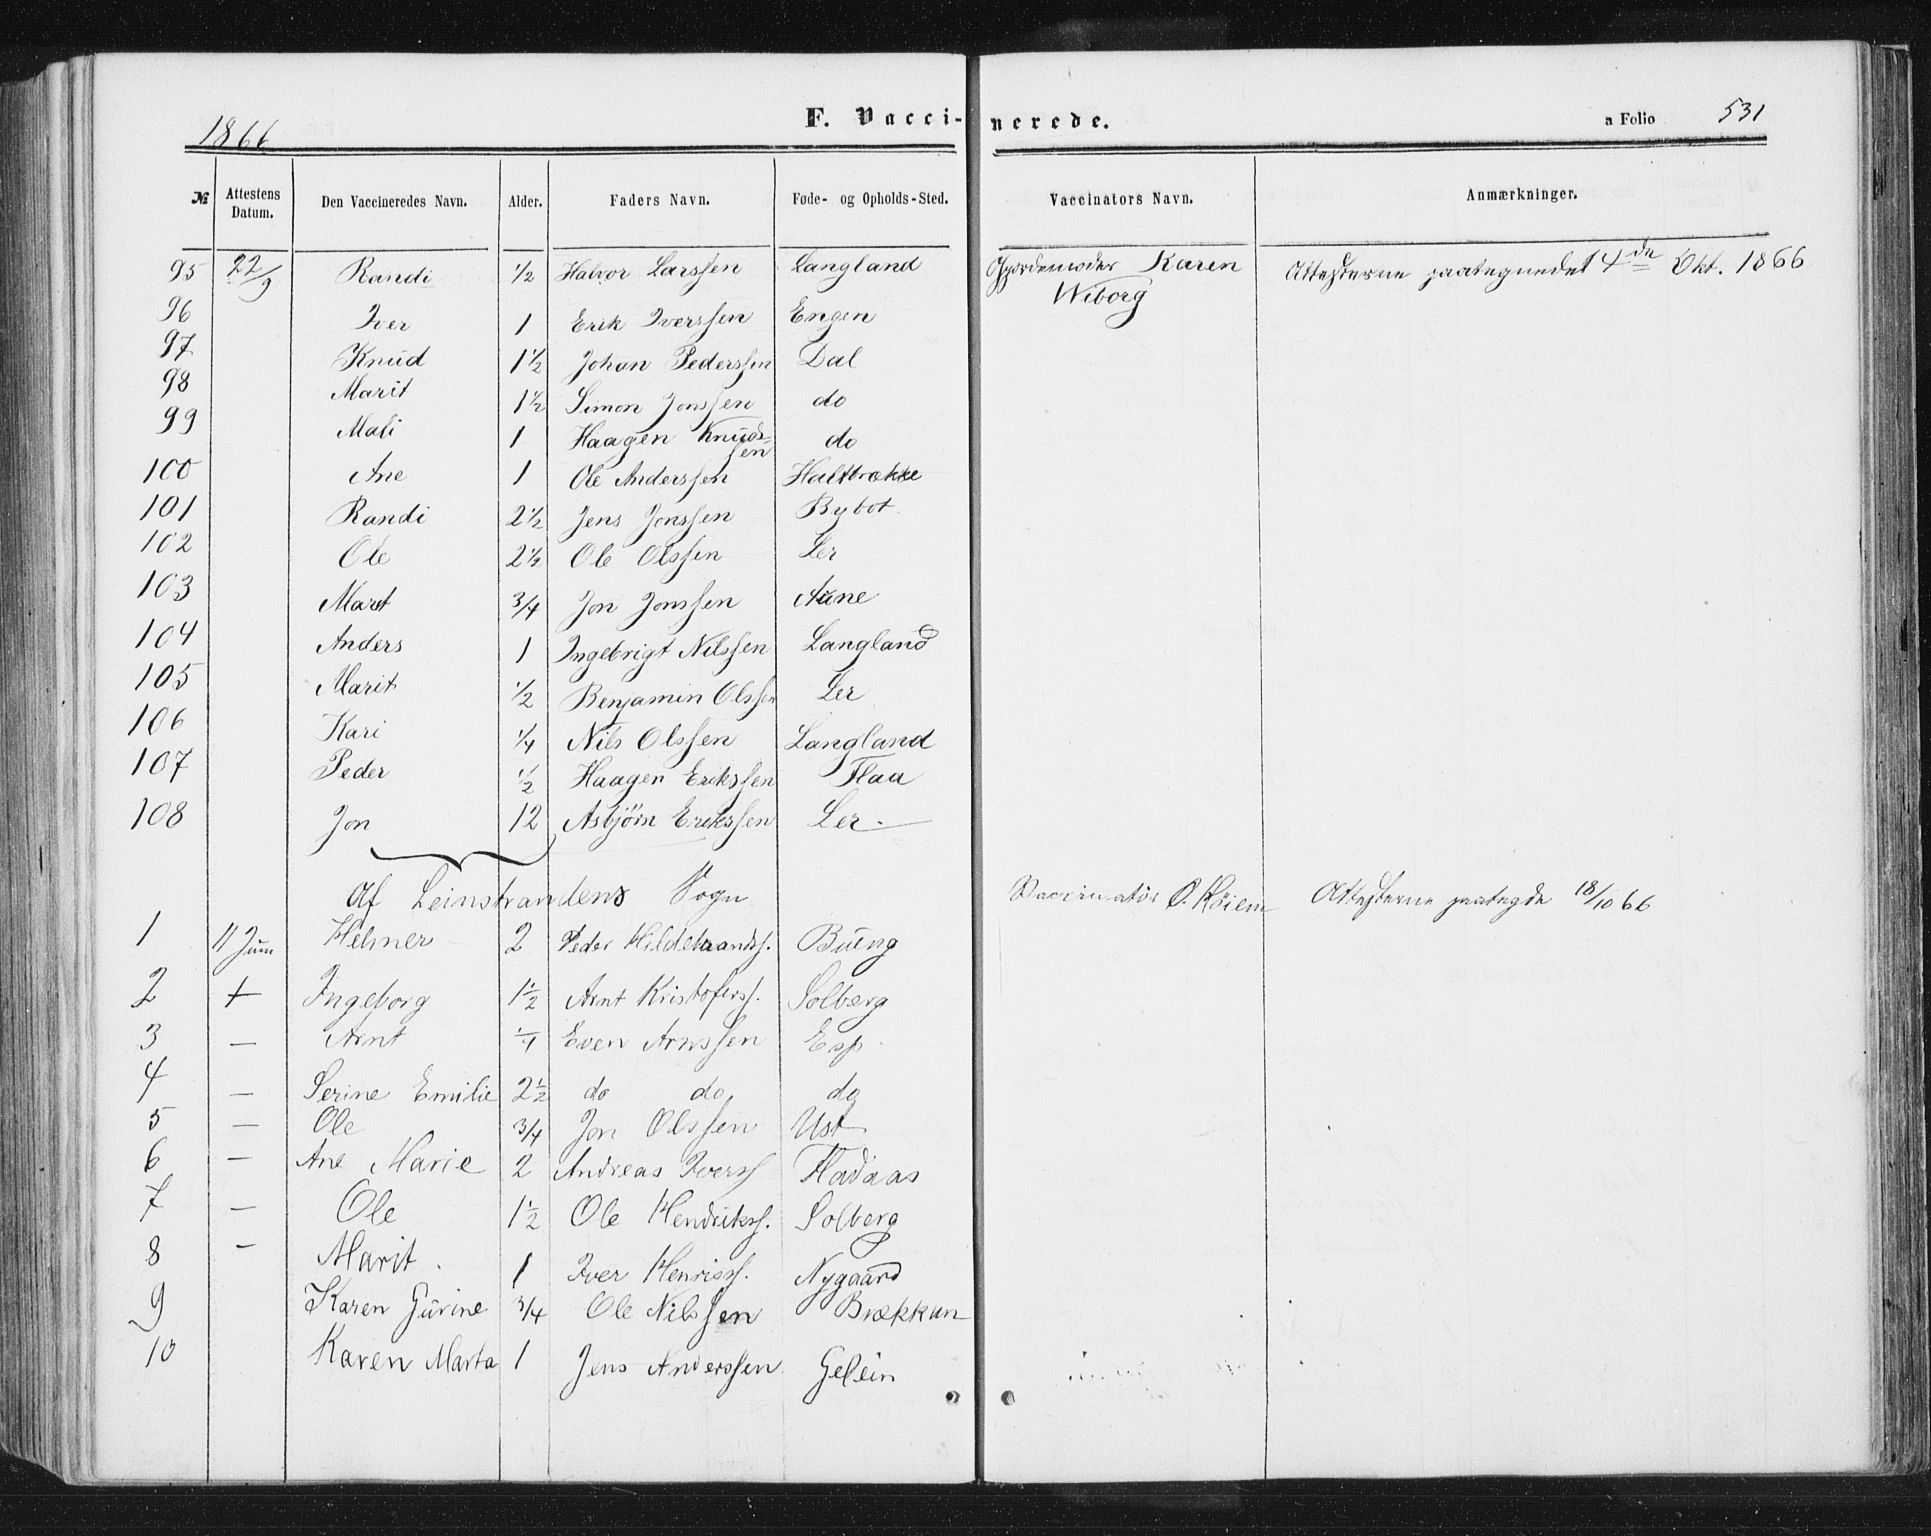 1866 F. Vaccinerede. a Folio 531
№ Attestens Datum. Den Vaccineredes Navn. Alder. Faders Navn. Føde- og Opholds-Sted. Vaccinators Navn. Anmærkninger.
95 22/9 Randi 1/2 Halvor Larssen Langland Gjordemoder Karen Wiborg Attesterne paategnedet 4de Okt. 1866
96 Iver 1 Erik Iverssen Engen
97 Knud 1 1/2 Johan Pederssen Dal
98 Marit 1 1/2 Simon Jonssen do
99 Mali 1 Haagen Knudssen do
100 Ane 1 Ole Anderssen Haltbrække
101 Randi 2 1/2 Jens Jonssen Bybot
102 Ole 2 1/2 Ole Olssen Ler
103 Maret 3/4 Jon Jonssen Aune
104 Anders 1 Ingebrigt Nilssen Langland
105 Marit 1/2 Benjamin Olssen Ler
106 Kari 1/4 Nils Olssen Langland
107 Peder 1/2 Haagen Erikssen Flaa
108 Jon 12 Asbjörn Erikssen Ler
Af Leinstrandens Sogn Vaccinatör O. Attesterne paategde 18/10 66
1 11 Juni Helmer 2 Peder Hildebrands. Bueng
2 + Ingeborg 1 1/2 Arnt Kristofers. Solberg
3 — Arnt 1/4 Even Arnssen Esp
4 — Serine Emilie 2 1/2 do do do
5 — Ole 3/4 Jon Olssen Ust
6 — Ane Marie 2 Andreas Ivers Fladaas
7 — Ole 1 1/2 Ole Hendriks. Solberg
8 — Marit 1 Iver Henriss. Nygaard
9 Karen Gurine 3/4 Ole Nilssen Brækkan
10 Karen Marta 1 Jens Anderssen Gelein